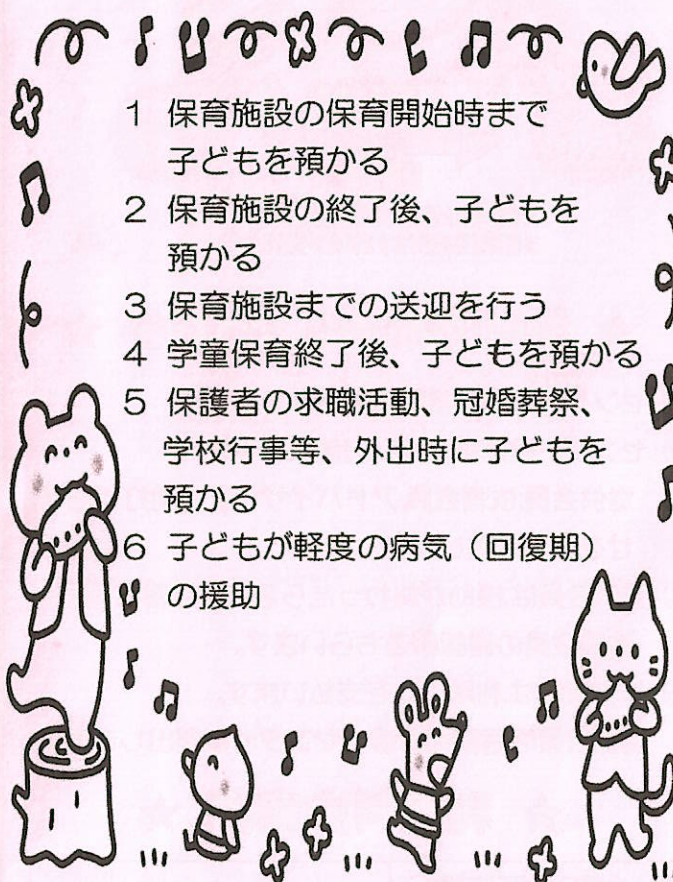 1 保育施設の保育開始時まで
子どもを預かる
2 保育施設の終了後、子どもを
預かる
3 保育施設までの送迎を行う
4 学童保育終了後、子どもを預かる
5 保護者の求職活動、冠婚葬祭、
学校行事等、外出時に子どもを
預かる
6 子どもが軽度の病気（回復期）
の援助